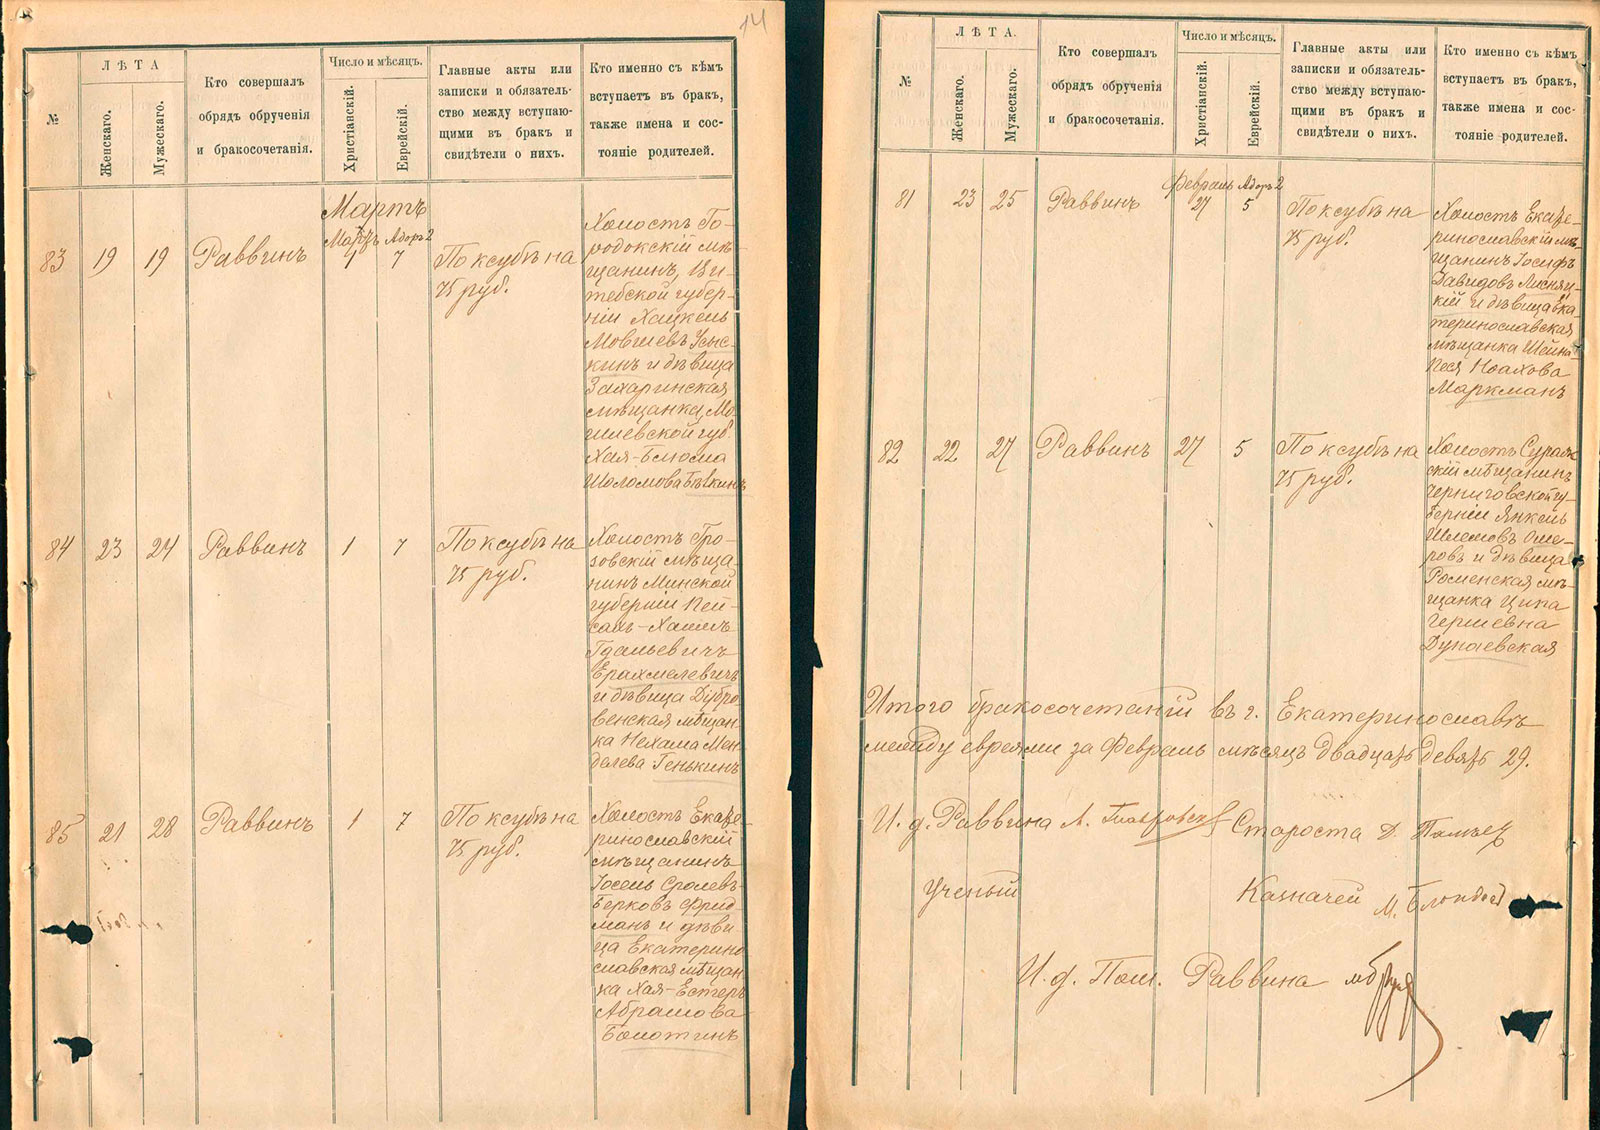 14
№
ЛѢТА
Женскаго.
Мужескаго.
Кто совершалъ
обрядъ обрученія
и бракосочетанія.
Число и мѣсяцъ.
Христіанскій.
Еврейскій.
Главные акты или
записки и обязатель-
ство между вступаю-
щими въ бракъ и
свидѣтели о нихъ.
Кто именно съ кѣмъ
вступаетъ въ бракъ,
также имена и сос-
тояніе родителей.
Мартъ
83 19 19 Раввинъ
Мартъ Адоръ 2
1 7
По ксубѣ на
75 руб.
Холостъ Го-
родокскій мѣ-
щанинъ, Ви-
тебской губер-
ніи Хацкель
Мовшевъ Усыс-
кинъ и дѣвица
Захаринская
мѣщанка, Мо-
гилевской губ.
Хая-Блюма
Шоломова Бѣлкинъ
84 23 24 Раввинъ 1 7
По ксубѣ на
75 руб.
Холостъ Гро-
зовскій мѣща-
нинъ Минской
губерніи Пей-
сахъ-Хаимъ
Гдальевичъ
Ерахмелевичъ
и дѣвица Дубро-
венская мѣщан-
ка Нехама Мен-
делева Генькинъ
85 21 28 Раввинъ 1 7
По ксубѣ на
75 руб.
Холостъ Екате-
ринославскій
мѣщанинъ
Іосель Сролевъ-
Берковъ Фрид-
манъ и дѣви
ца Екатерино
славская мѣщан
ка Хая-Естеръ
Абрамова
Болотинъ
№
ЛѢТА.
Женскаго.
Мужескаго.
Кто совершалъ
обрядъ обрученія
и бракосочетанія.
Число и мѣсяцъ.
Христіанскій.
Еврейскій.
Главные акты или
записки и обязатель-
ство между вступаю-
щими въ бракъ и
свидѣтели о нихъ.
Кто именно съ кѣмъ
вступаетъ въ бракъ,
также имена и сос-
тояніе родителей.
81 23 25 Раввинъ
Февраль Адоръ 2
27 5
По ксубѣ на
75 руб.
Холостъ Екате-
ринославскій мѣ-
щанинъ Іосифъ
Давидовъ Лисняц-
кій и дѣвица Ека
теринославская
мѣщанка Шейна-
Песя Ноахова
Маркманъ
82 22 27 Раввинъ 27 5
По ксубѣ на
75 руб.
Холостъ Сураж
скій мѣщанинъ
Черниговской гу-
берніи Янкель
Шлемовъ Оше-
ровъ и дѣвица
Роменская мѣ-
щанка Ципа
Гершевна
Дунаевская
Итого бракосочетаній въ г. Екатеринославѣ
между евреями за Февраль мѣсяцъ двадцать девять 29.
И. д. Раввина Л. Староста Д.
Ученый Казначей М.
И. д. Пом. Раввина